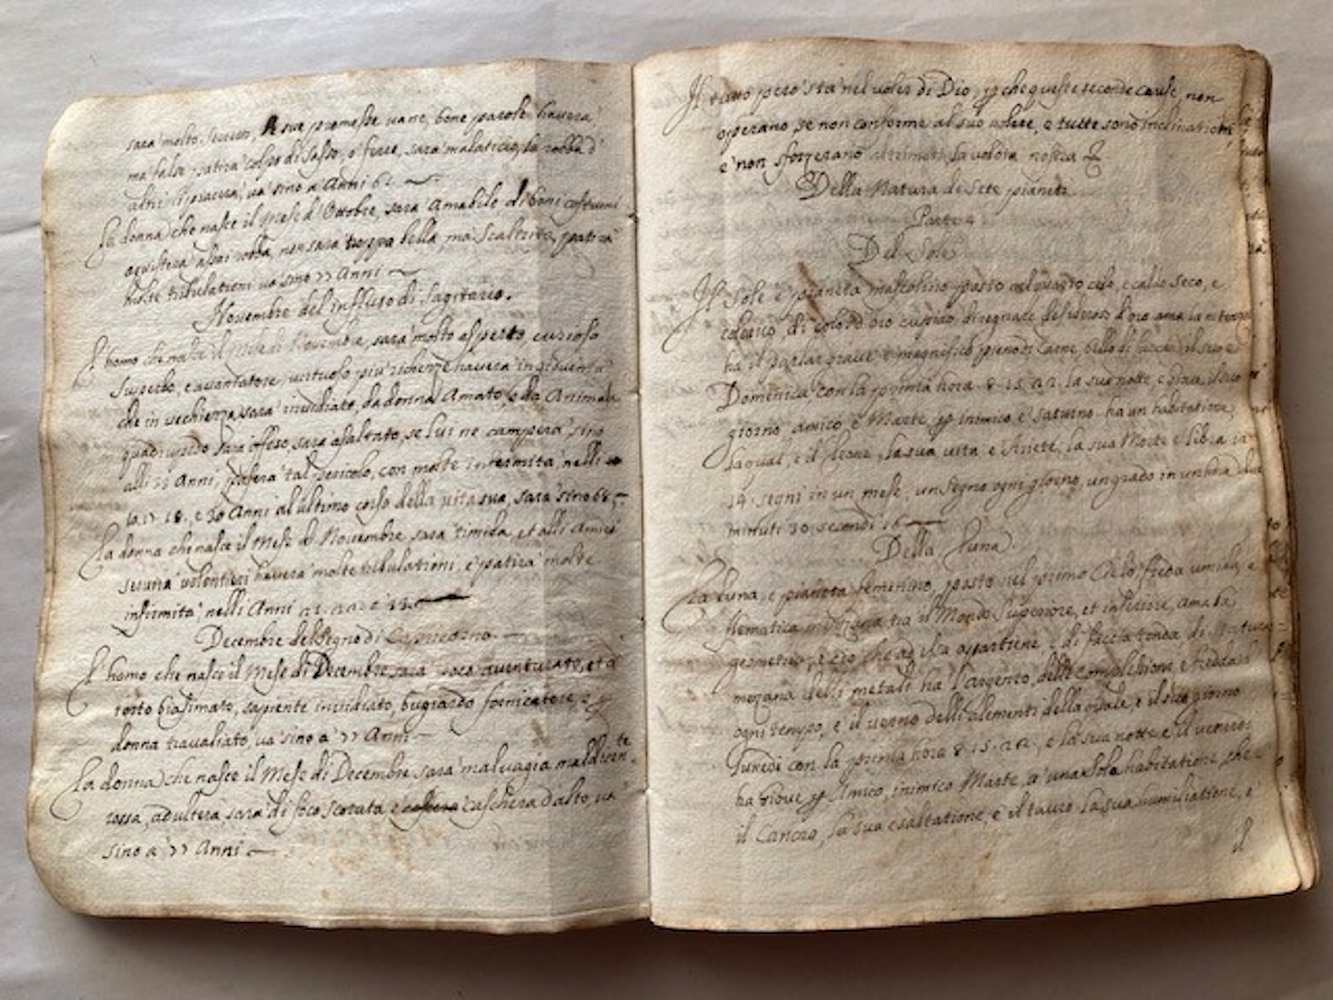 sarà molto secreto, A sue promesse vane, bone parole haverà
ma false, patirà colpo di sasso, o ferre, sarà malaticcio, la robba d'
altri li piacerà, va sino a Anni 61
La donna che nasce il Mese d'Ottobre, sarà Amabile di boni costumi
aquisterà assai robba, non sarà troppo bella ma scaltrita, patirà
molte tribulationi va sino 77 Anni
Novembre del influso di Sagitario.
L'homo che nasce il Mese di Novembre, sarà molto esperto, curioso
superbo, e avantatore, virtuoso, più richezze haverà in gioventù
che in vechiezza, sarà invidiato, da donna Amato, e da Animale
quadrupedo sarà offeso, sarà assaltato, se lui ne camperà sino
alli Anni, passerà tal pericolo, con molte infermità nelli
10. 17. 18. e 30 Anni al ultimo corso della vita sua, sarà sino 68
La donna che nasce il Mese di Novembre sarà timida, et alli Amici
servirà volontieri haverà molte tribulationi, e patirà molte
infirmità nelli Anni 21. 22. e
Decembre del Segno di Capricorno
L'homo che nasce il Mese di Decembre sarà poco aventurato, et à
torto biasimato, sapiente invidiato, bugiardo fornicatore, e p
donna travaliato, va sino a 77 Anni
La donna che nasce il Mese di Decembre sarà malvagia maldicente
rossa, adultera sarà di foco scotata e cascherà d'alto, va
sino a 77 Anni
Il tutto però stà nel voler di Dio, p che queste seconde cause, non
operano, se non conforme al suo volere, e tutte sono inclinationi
e non sforzerano altrimenti la volontà nostra
Della Natura de Sete pianeti
Parte
Del Sole
Il Sole è pianeta mascolino posto nel quarto cielo, e calido seco, e
colerico, di colore d'oro cupido di regnare desideroso d'oro ama la
ha il parlar grave e magnifico pieno di carne, bello di faccia il suo è
Domenica con la prima hora 8. 15. 22. la sua notte, e giove, il suo
giorno amico, è Marte, p inimico è Saturno ha un habitatione
la qual, è il Leone, la sua vita è Ariete, la sua Morte è libra va
14. segni in un mese, un segno ogni giorno, un grado in un hora
minuti 30 secondi 16
Della Luna.
La Luna, è pianeta feminino, posto nel primo Cielo, freda umida, e
flematica tra il Mondo Superiore, et inferiore, ama la
geometria, e ciò che ad essa appartiene è di faccia tonda di statura
mezana delli metali ha l'argento, delle complessione è fredda d'
ogni tempo, è il verno delli elementi della e il suo giorno
lunedi con la prima hora 8. 15. 22. e la sua notte è il venere
ha Giove p Amico, inimico Marte, à una sola habitatione che
il Cancro, la sua esaltatione, è il tauro la sua humiliatione, è
il